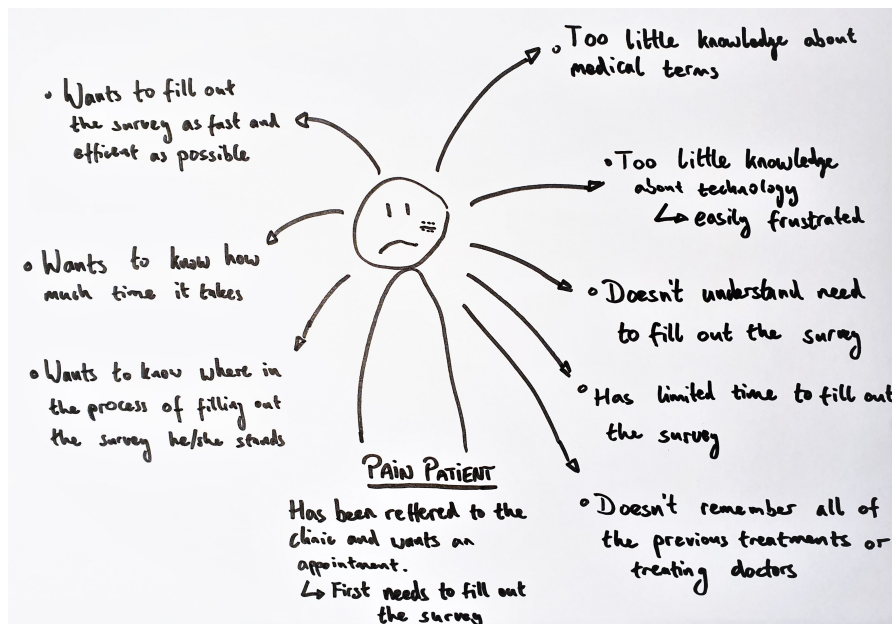 • Wants to fill out
the survey as fast and
efficent as possible
• Wants to know how
much time it takes
• Wants to know where in
the process of filling out
the survey he/she stands
• Too little knowledge about
medical terms
• Too little knowledge
about technology
↳ easily frustrated
• Doesn't understand need
to fill out the survey
• Has limited time to fill out
the survey
• Doesn't remember all of
the previous treatments or
treating doctors
PAIN PATIENT
Has been reffered to the
clinic and wants an
appointment.
↳ First needs to fill out
the survey